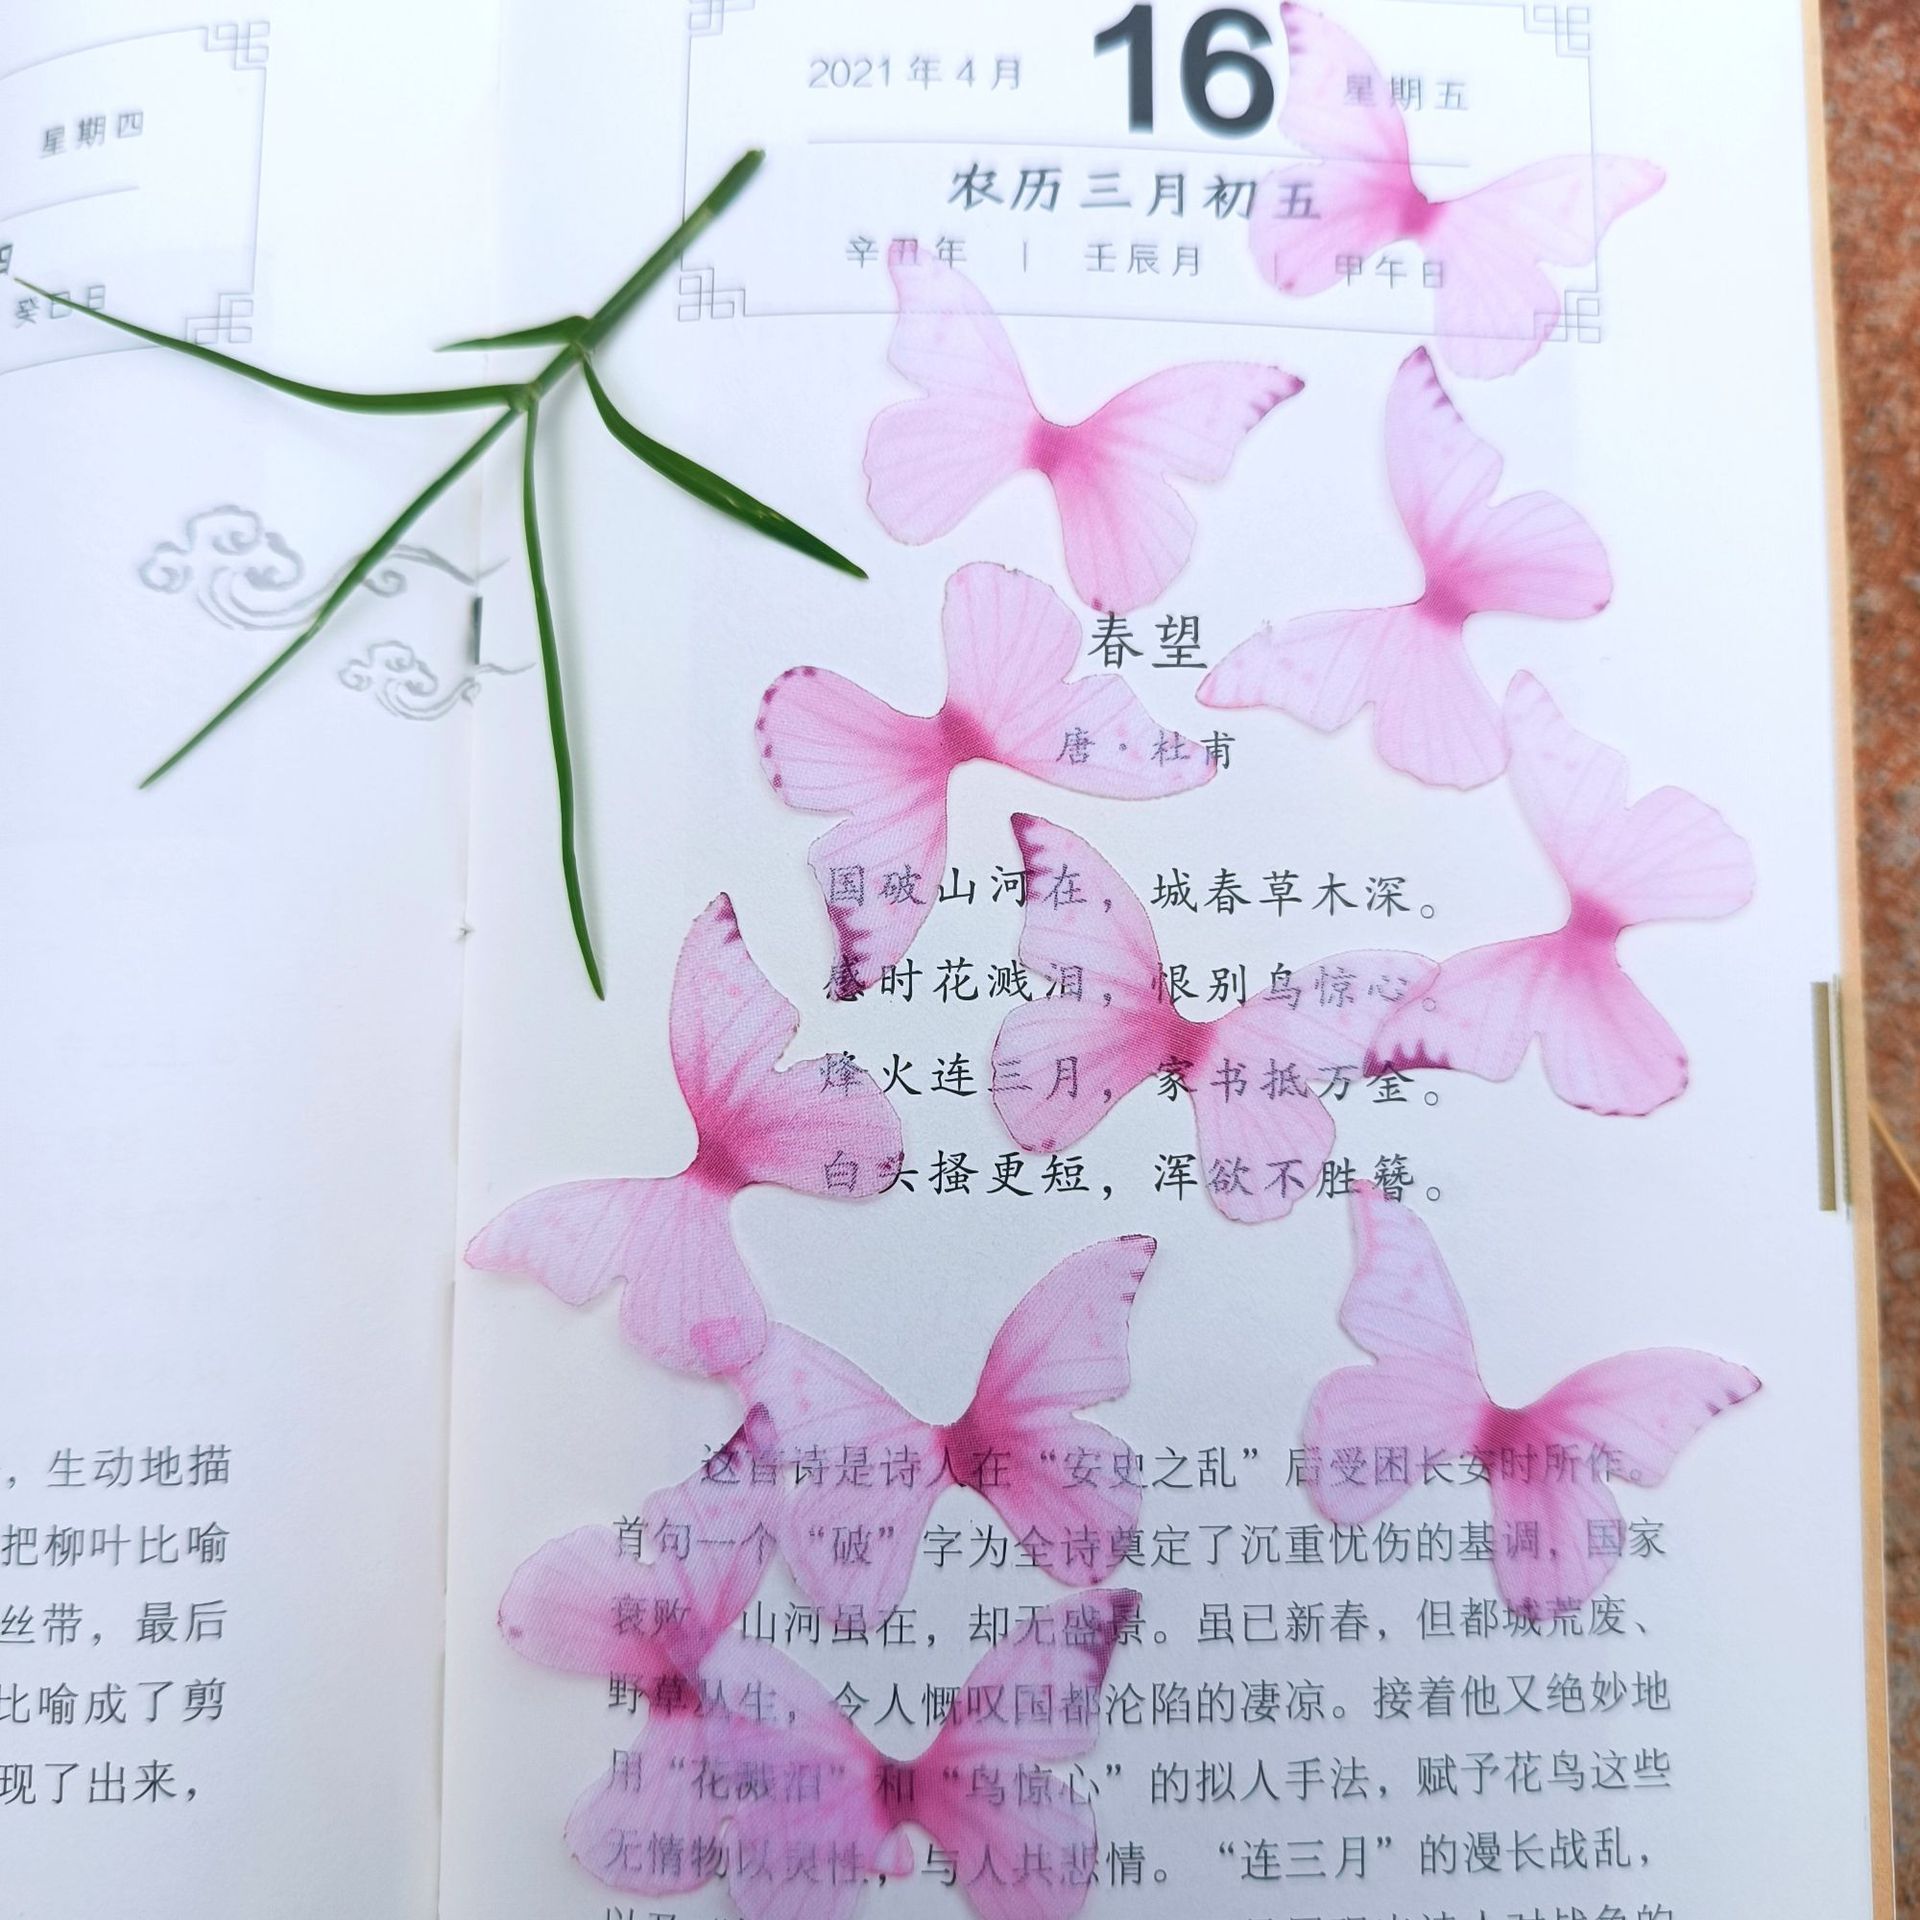 星期四
癸巳日
，生动地描
把柳叶比喻
丝带，最后
比喻成了剪
现了出来，
2021年4月 16 星期五
农历三月初五
辛丑年 | 壬辰月 | 甲午日
春望
唐·杜甫
国破山河在，城春草木深。
感时花溅泪，恨别鸟惊心。
烽火连三月，家书抵万金。
白头搔更短，浑欲不胜簪。
这首诗是诗人在“安史之乱”后受困长安时所作。
首句一个“破”字为全诗奠定了沉重忧伤的基调，国家
衰败，山河虽在，却无盛景。虽已新春，但都城荒废、
野草丛生，令人慨叹国都沦陷的凄凉。接着他又绝妙地
用“花溅泪”和“鸟惊心”的拟人手法，赋予花鸟这些
无情物以灵性，与人共悲情。“连三月”的漫长战乱，